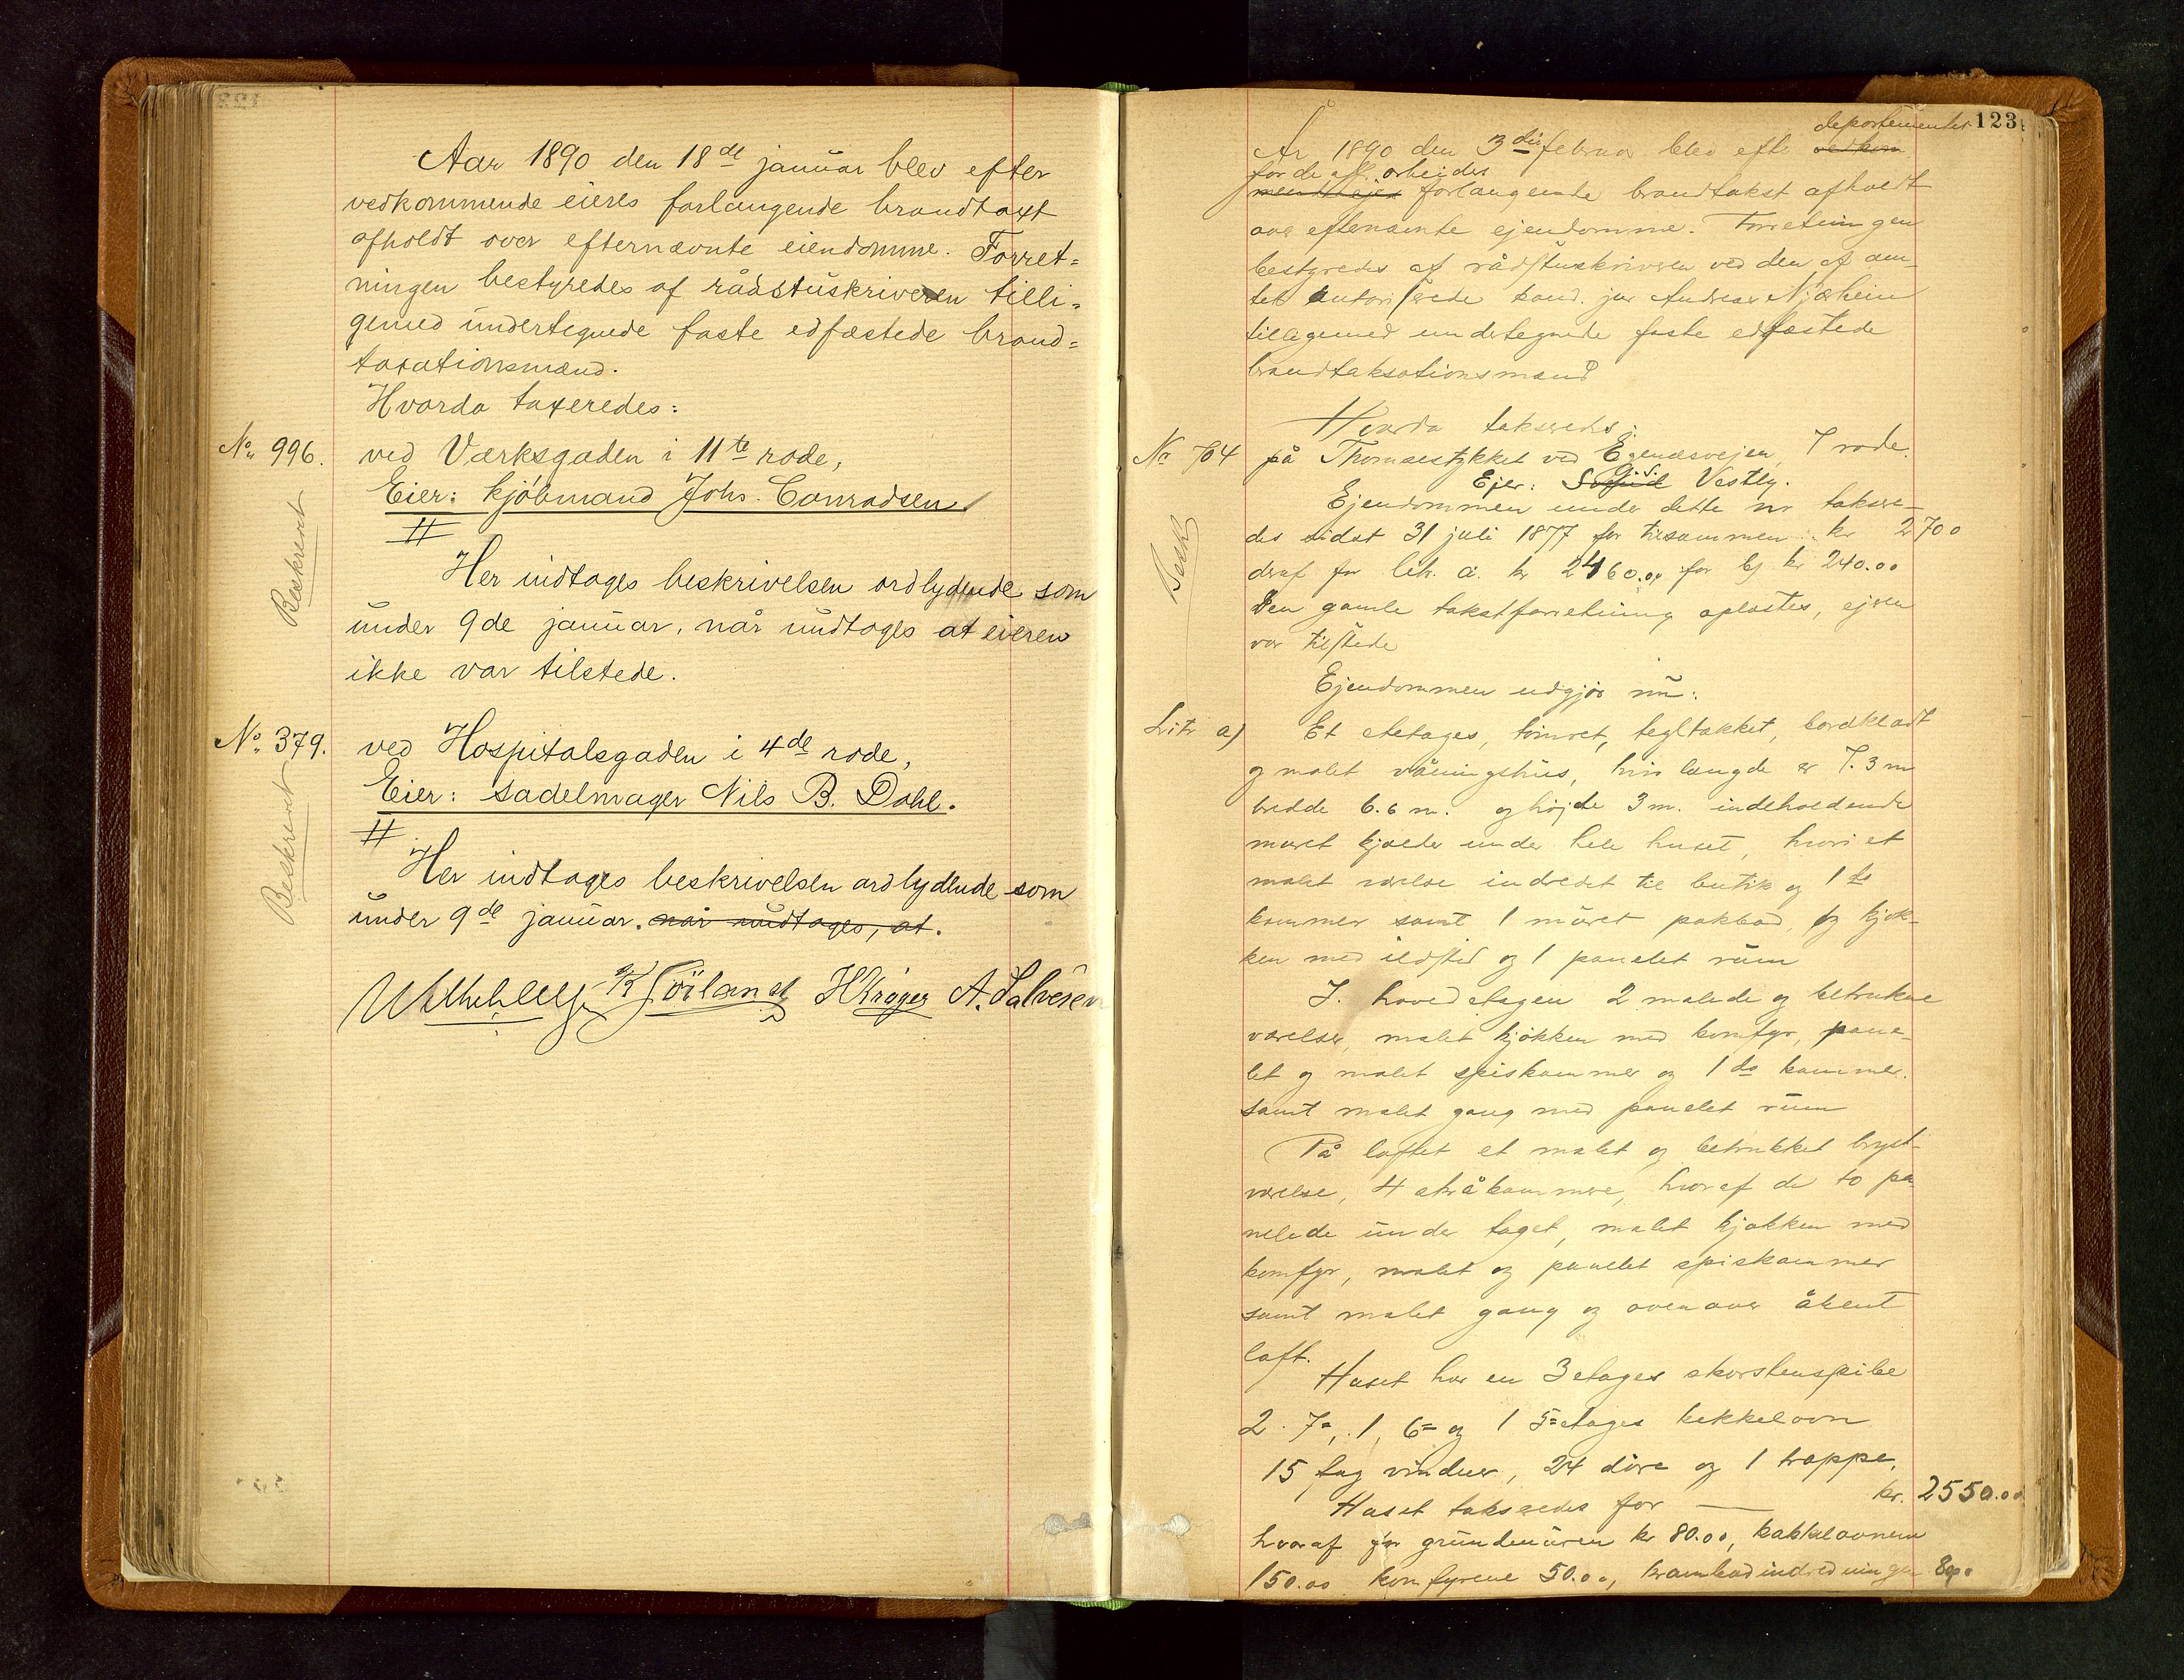 Aar 1890 den 18de januar blev efter
vedkommende eieres forlangende brandtaxt
afholdt over efternævnte eiendomme. Forret=
ningen bestyredes af rådstuskriveren tilli=
gemed undertegnede faste edfæstede brand=
taxationsmænd.
Hvorda taxeredes:
No. 996. ved Værksgaden i 11te rode,
Eier: kjøbmand Johs. Conradsen
Beskrevet
Her indtages beskrivelsen ordlydende som
under 9de januar, når undtages at eieren
ikke var tilstede.
No. 379. ved Hospitalsgaden i 4de rode,
Eier: sadelmager Nils B. Dahl.
Beskrevet
Her indtages beskrivelsen ordlydende som
under 9de januar. når undtages, at.
HKrøger A. Salvesen
123
departementet
År 1890 den 3die februar blev efter vedkom
for de off. arbeider
mende ejers forlangende brandtakst afholdt
over efternævnte ejendomme. Forretningen
bestyredes af rådstuskriveren ved den af am-
tet autoriserede kand. jur Andreas Njærheim
tilligemed undertegnede faste edfæstede
brandtaksationsmænd
Hvorda takseredes:
No 704 på Thomasstykket ved Egenæsvejen, 7 rode.
G. S.
Ejer: Sigurd Vestly.
Ejendommen under dette nr taksere-
Besk
des sidst 31 juli 1877 for tilsammen kr 2700
deraf for litr. a. kr 2460.00 for b) kr 240.00
Den gamle takstforretning oplæstes, ejeren
var tilstede
Ejendommen udgjør nu:
Litr a) Et etetages, tømret, tegltækket, bordklædt
og malet våningshus, hvis længde er 7.3 m
bredde 6.6 m. og højde 3 m. indeholdende
muret kjælder under hele huset, hvori et
malet værelse indredet til butik og 1 do
kammer samt 1 muret pakbod, og kjøk-
ken med ildsted og 1 panelet rum
I hovedetagen 2 malede og betrukne
værelser, malet kjøkken med komfyr, pane-
let og malet spiskammer og 1 do kammer.
samt malet gang med panelet rum
På loftet et malet og betrukket kvist-
værelse, 4 skråkammere, hvoraf de to pa
nelede under taget, malet kjøkken med
komfyr, malet og panelet spiskammer
samt malet gang og ovenover åbent
loft.
Huset har en 3 etages skorstenspibe
2. 7=, 1, 6= og 1 5=etages kakkelovn
15 fag vinduer, 24 døre og 1 trappe,
Huset takseredes for — kr. 2550.00
hvoraf for grundmuren kr 80.00, kakkelovnene
150.00 komfyrene 50.00, krambodindredningen 80.00